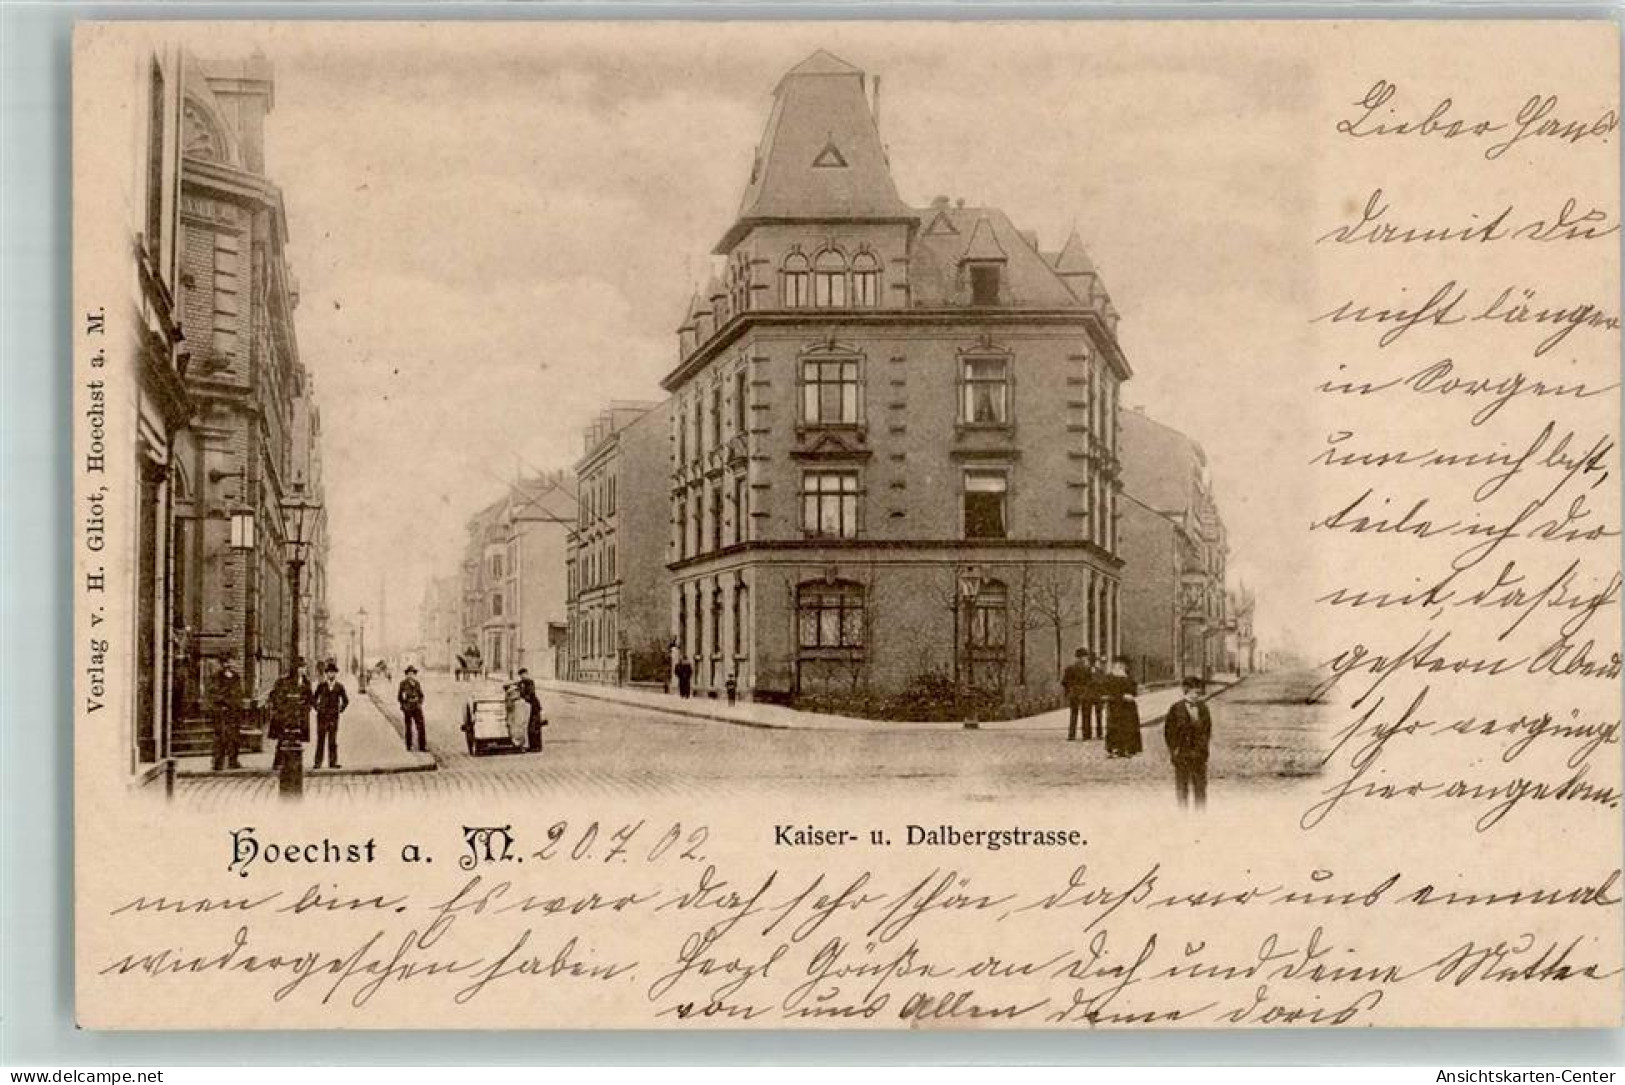 Verlag v. H. Gliot, Hoechst a. M.
Lieber Hans!
Damit Du
nicht länger
in Sorgen
um mich bist,
teile ich Dir
mit, daß ich
gestern Abend
sehr vergnügt
hier angekom-
Hoechst a. M. 20.7.02.
Kaiser- u. Dalbergstrasse.
men bin. Es war doch sehr schön, daß wir uns einmal
wiedergesehen haben. Herzl Grüße an Dich und Deine Mutter
von uns Allen Deine Doris
www.oldthing.de
Ansichtskarten-Center